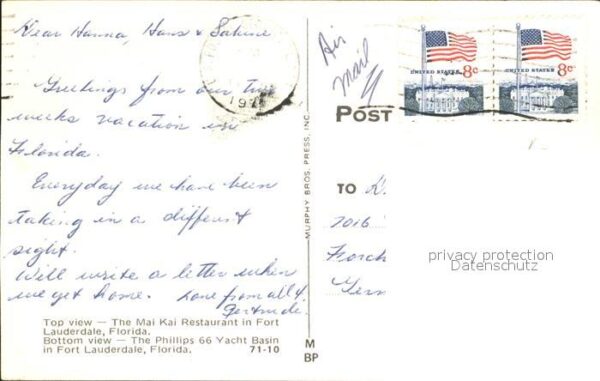 Dear Hanna, Hans & Sabine
Greetings from our two
weeks vacation in
Florida.
Everyday we have been
taking in a different
sight.
Will write a letter when
we get home. Love from all of
Gertrude.
Top view — The Mai Kai Restaurant in Fort
Lauderdale, Florida.
Bottom view — The Phillips 66 Yacht Basin
in Fort Lauderdale, Florida. 71-10
MURPHY BROS. PRESS, INC.
M
BP
197
Air
mail
UNITED STATES 8c
UNITED STATES 8c
POST
TO
7016
privacy protection
Datenschutz